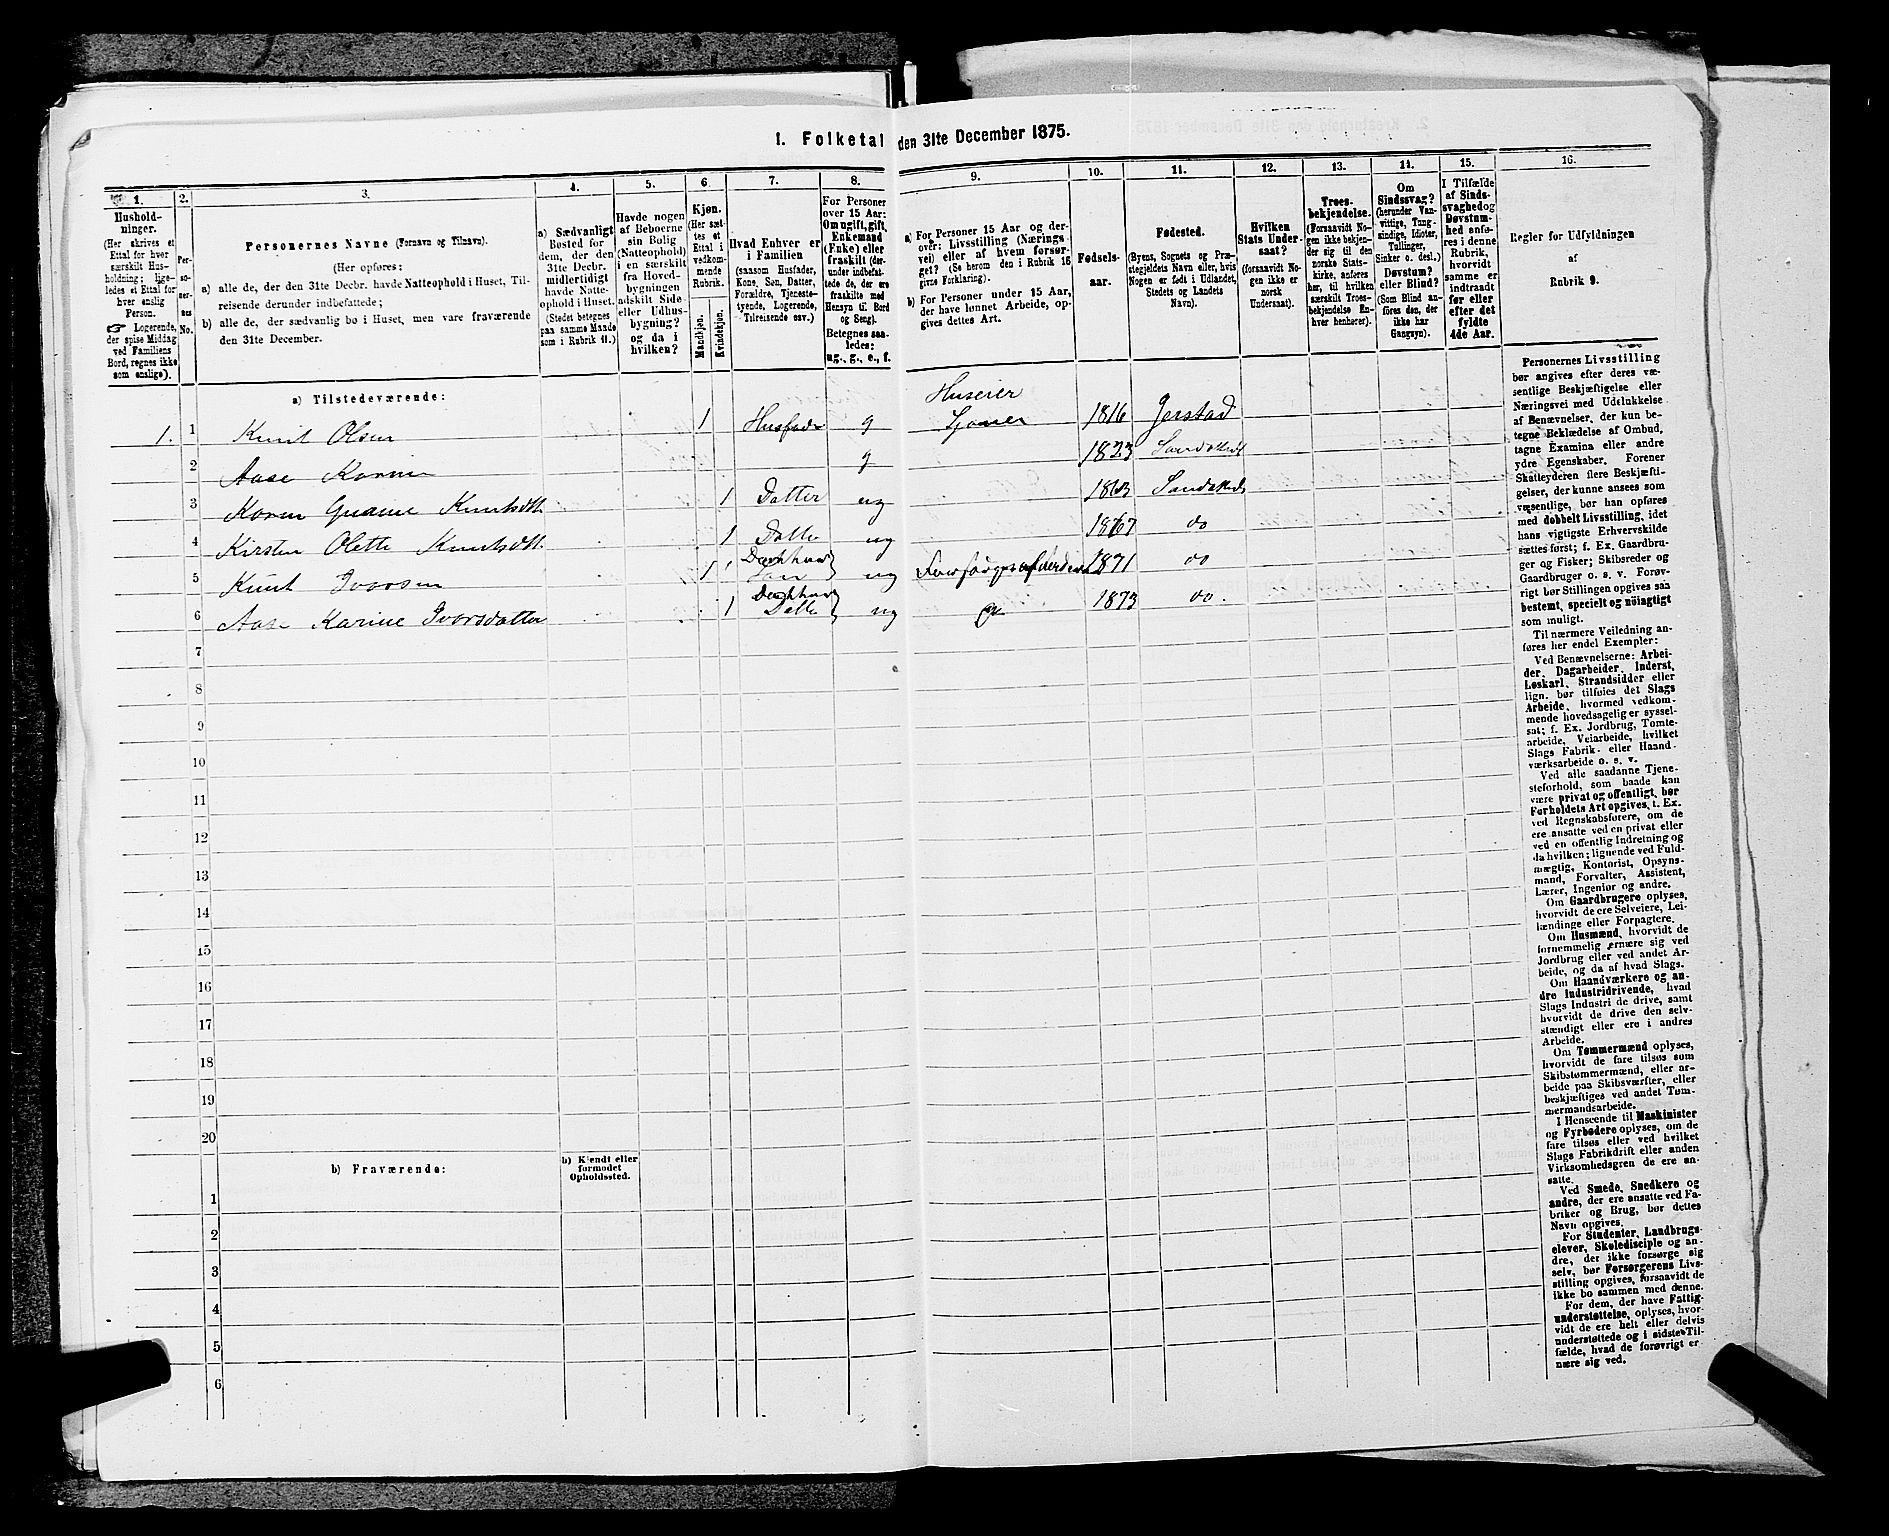 1. Folketal den 31te December 1875.
1.
2.
3.
4.
5.
6.
7.
8.
9.
10.
11.
12.
13.
14.
15.
16.
Hushold-
ninger.
(Her skrives et
Ettal for hver
særskilt Hus-
holdning; lige-
ledes et Ettal for
hver enslig
Person.
☞ Logerende,
der spise Middag
ved Familiens
Bord, regnes ikke
som enslige).
Per-
so-
ner-
nes
No.
Personernes Navne (Fornavn og Tilnavn).
(Her opføres:
a) alle de, der den 31te Decbr. havde Natteophold i Huset, Til-
reisende derunder indbefattede;
b) alle de, der sædvanlig bo i Huset, men vare fraværende
den 31te December.
a) Sædvanligt
Bosted for
dem, der den
31te Decbr.
midlertidigt
havde Natte-
ophold i Huset.
(Stedet betegnes
paa samme Maade
som i Rubrik 11.)
Havde nogen
af Beboerne
sin Bolig
(Natteophold)
i en særskilt
fra Hoved-
bygningen
adskilt Side-
eller Udhus-
bygning?
og da i
hvilken?
Kjøn.
(Her sæt-
tes et
Ettal i
vedkom-
mende
Rubrik.
Mandkjøn.
Kvindekjøn.
Hvad Enhver er
i Familien
(saasom Husfader,
Kone, Søn, Datter,
Forældre, Tjeneste-
tyende, Logerende,
Tilreisende osv.)
For Personer
over 15 Aar:
Om ugift, gift,
Enkemand
(Enke) eller
fraskilt (der-
under indbefat-
tede de, der ere
fraskilte med
Hensyn til Bord
og Seng).
Betegnes saa-
ledes:
ug., g., e., f.
a) For Personer 15 Aar og der-
over: Livsstilling (Nærings-
vei) eller af hvem forsør-
get? (Se herom den i Rubrik 16
givne Forklaring).
b) For Personer under 15 Aar,
der have lønnet Arbeide, op-
gives dettes Art.
Fødsels-
aar.
Fødested.
(Byens, Sognets og Præ-
stegjeldets Navn eller, hvis
Nogen er født i Udlandet,
Stedets og Landets
Navn).
Hvilken
Stats Under-
saat?
(forsaavidt No-
gen ikke er
norsk
Undersaat).
Troes-
bekjendelse.
(Forsaavidt No-
gen ikke bekjen-
der sig til den
norske Stats-
kirke, anføres
her, til hvilken
særskilt Troes-
bekjendelse En-
hver henhører).
Om
Sindssvag?
(herunder Van-
vittige, Tung-
sindige, Idioter,
Tullinger,
Sinker o. desl.)
Døvstum?
eller Blind?
(Som Blind an-
føres den, der
ikke har
Gangsyn).
I Tilfælde
af Sinds-
svaghed og
Døvstum-
hed anfø-
res i denne
Rubrik,
hvorvidt
samme er
indtraadt
før eller
efter det
fyldte
4de Aar.
Regler for Udfyldningen
af
Rubrik 9.
a) Tilstedeværende:
1. 1 Knut Olsen 1 Husfader g Huseier
1816 Jerstad
2 Aase Karine g 1823
3 Karen Knutsdtt 1 Datter ug 1863
4 Kirsten Olette Knutsdtt. 1 Datte ug 1867 do
5 Knut Ivorsen 1 ug 1871 do
6 Aase Karine Ivorsdatter 1 Datte ug 1873 do.
7
8
9
10
11
12
13
14
15
16
17
18
19
20
b) Fraværende:
b) Kjendt eller
formodet
Opholdssted.
1
2
3
4
5
6
Personernes Livsstilling
bør angives efter deres væ-
sentlige Beskjæftigelse eller
Næringsvei med Udelukkelse
af Benævnelser, der kun be-
tegne Beklædelse af Ombud,
tagne Examina eller andre
ydre Egenskaber. Forener
Skatteyderen flere Beskjæfti-
gelser, der kunne ansees som
væsentlige, bør han opføres
med dobbelt Livsstilling, idet
hans vigtigste Erhvervskilde
sættes først; f. Ex. Gaardbru-
ger og Fisker; Skibsreder og
Gaardbruger o. s. v. Forøv-
rigt bør Stillingen opgives saa
bestemt, specielt og nøiagtigt
som muligt.
Til nærmere Veiledning an-
føres her endel Exempler:
Ved Benævnelserne: Arbei-
der, Dagarbeider, Inderst,
Løskarl, Strandsidder eller
lign. bør tilføies det Slags
Arbeide, hvormed vedkom-
mende hovedsagelig er syssel-
sat; f. Ex. Jordbrug, Tomte-
arbeide, Veiarbeide, hvilket
Slags Fabrik- eller Haand-
værksarbeide o. s. v.
Ved alle saadanne Tjene-
steforhold, som baade kan
være privat og offentligt, bør
Forholdets Art opgives, t. Ex.
ved Regnskabsførere, om de
ere ansatte ved en privat eller
ved en offentlig Indretning og
da hvilken; lignende ved Fuld-
mægtig, Kontorist, Opsyns-
mand, Forvalter, Assistent,
Lærer, Ingeniør og andre.
Om Gaardbrugere oplyses,
hvorvidt de ere Selveiere, Lei-
lændinge eller Forpagtere.
Om Husmænd, hvorvidt de
fornemmelig ernære sig ved
Jordbrug eller ved andet Ar-
beide, og da af hvad Slags.
Om Haandværkere og an-
dre Industridrivende, hvad
Slags Industri de drive, samt
hvorvidt de drive den selv-
stændigt eller ere i andres
Arbeide.
Om Tømmermænd oplyses,
hvorvidt de fare tilsøs som
Skibstømmermænd, eller ar-
beide paa Skibsværfter, eller
beskjæftiges ved andet Tøm-
mermandsarbeide.
I Henseende til Maskinister
og Fyrbødere oplyses, om de
fare tilsøs eller ved hvilket
Slags Fabrikdrift eller anden
Virksomhedsgren de ere an-
satte.
Ved Smede, Snedkere og
andre, der ere ansatte ved Fa-
briker og Brug, bør dettes
Navn opgives.
For Studenter, Landbrugs-
elever, Skoledisciple og an-
dre, der ikke forsørge sig
selv, bør Forsørgerens Livs-
stilling opgives, forsaavidt de
ikke bo sammen med denne.
For dem, der have Fattig-
understøttelse, oplyses, hvor-
vidt de ere helt eller delvis
understøttede og i sidste Til-
fælde, hvad de forøvrigt er-
nære sig ved.